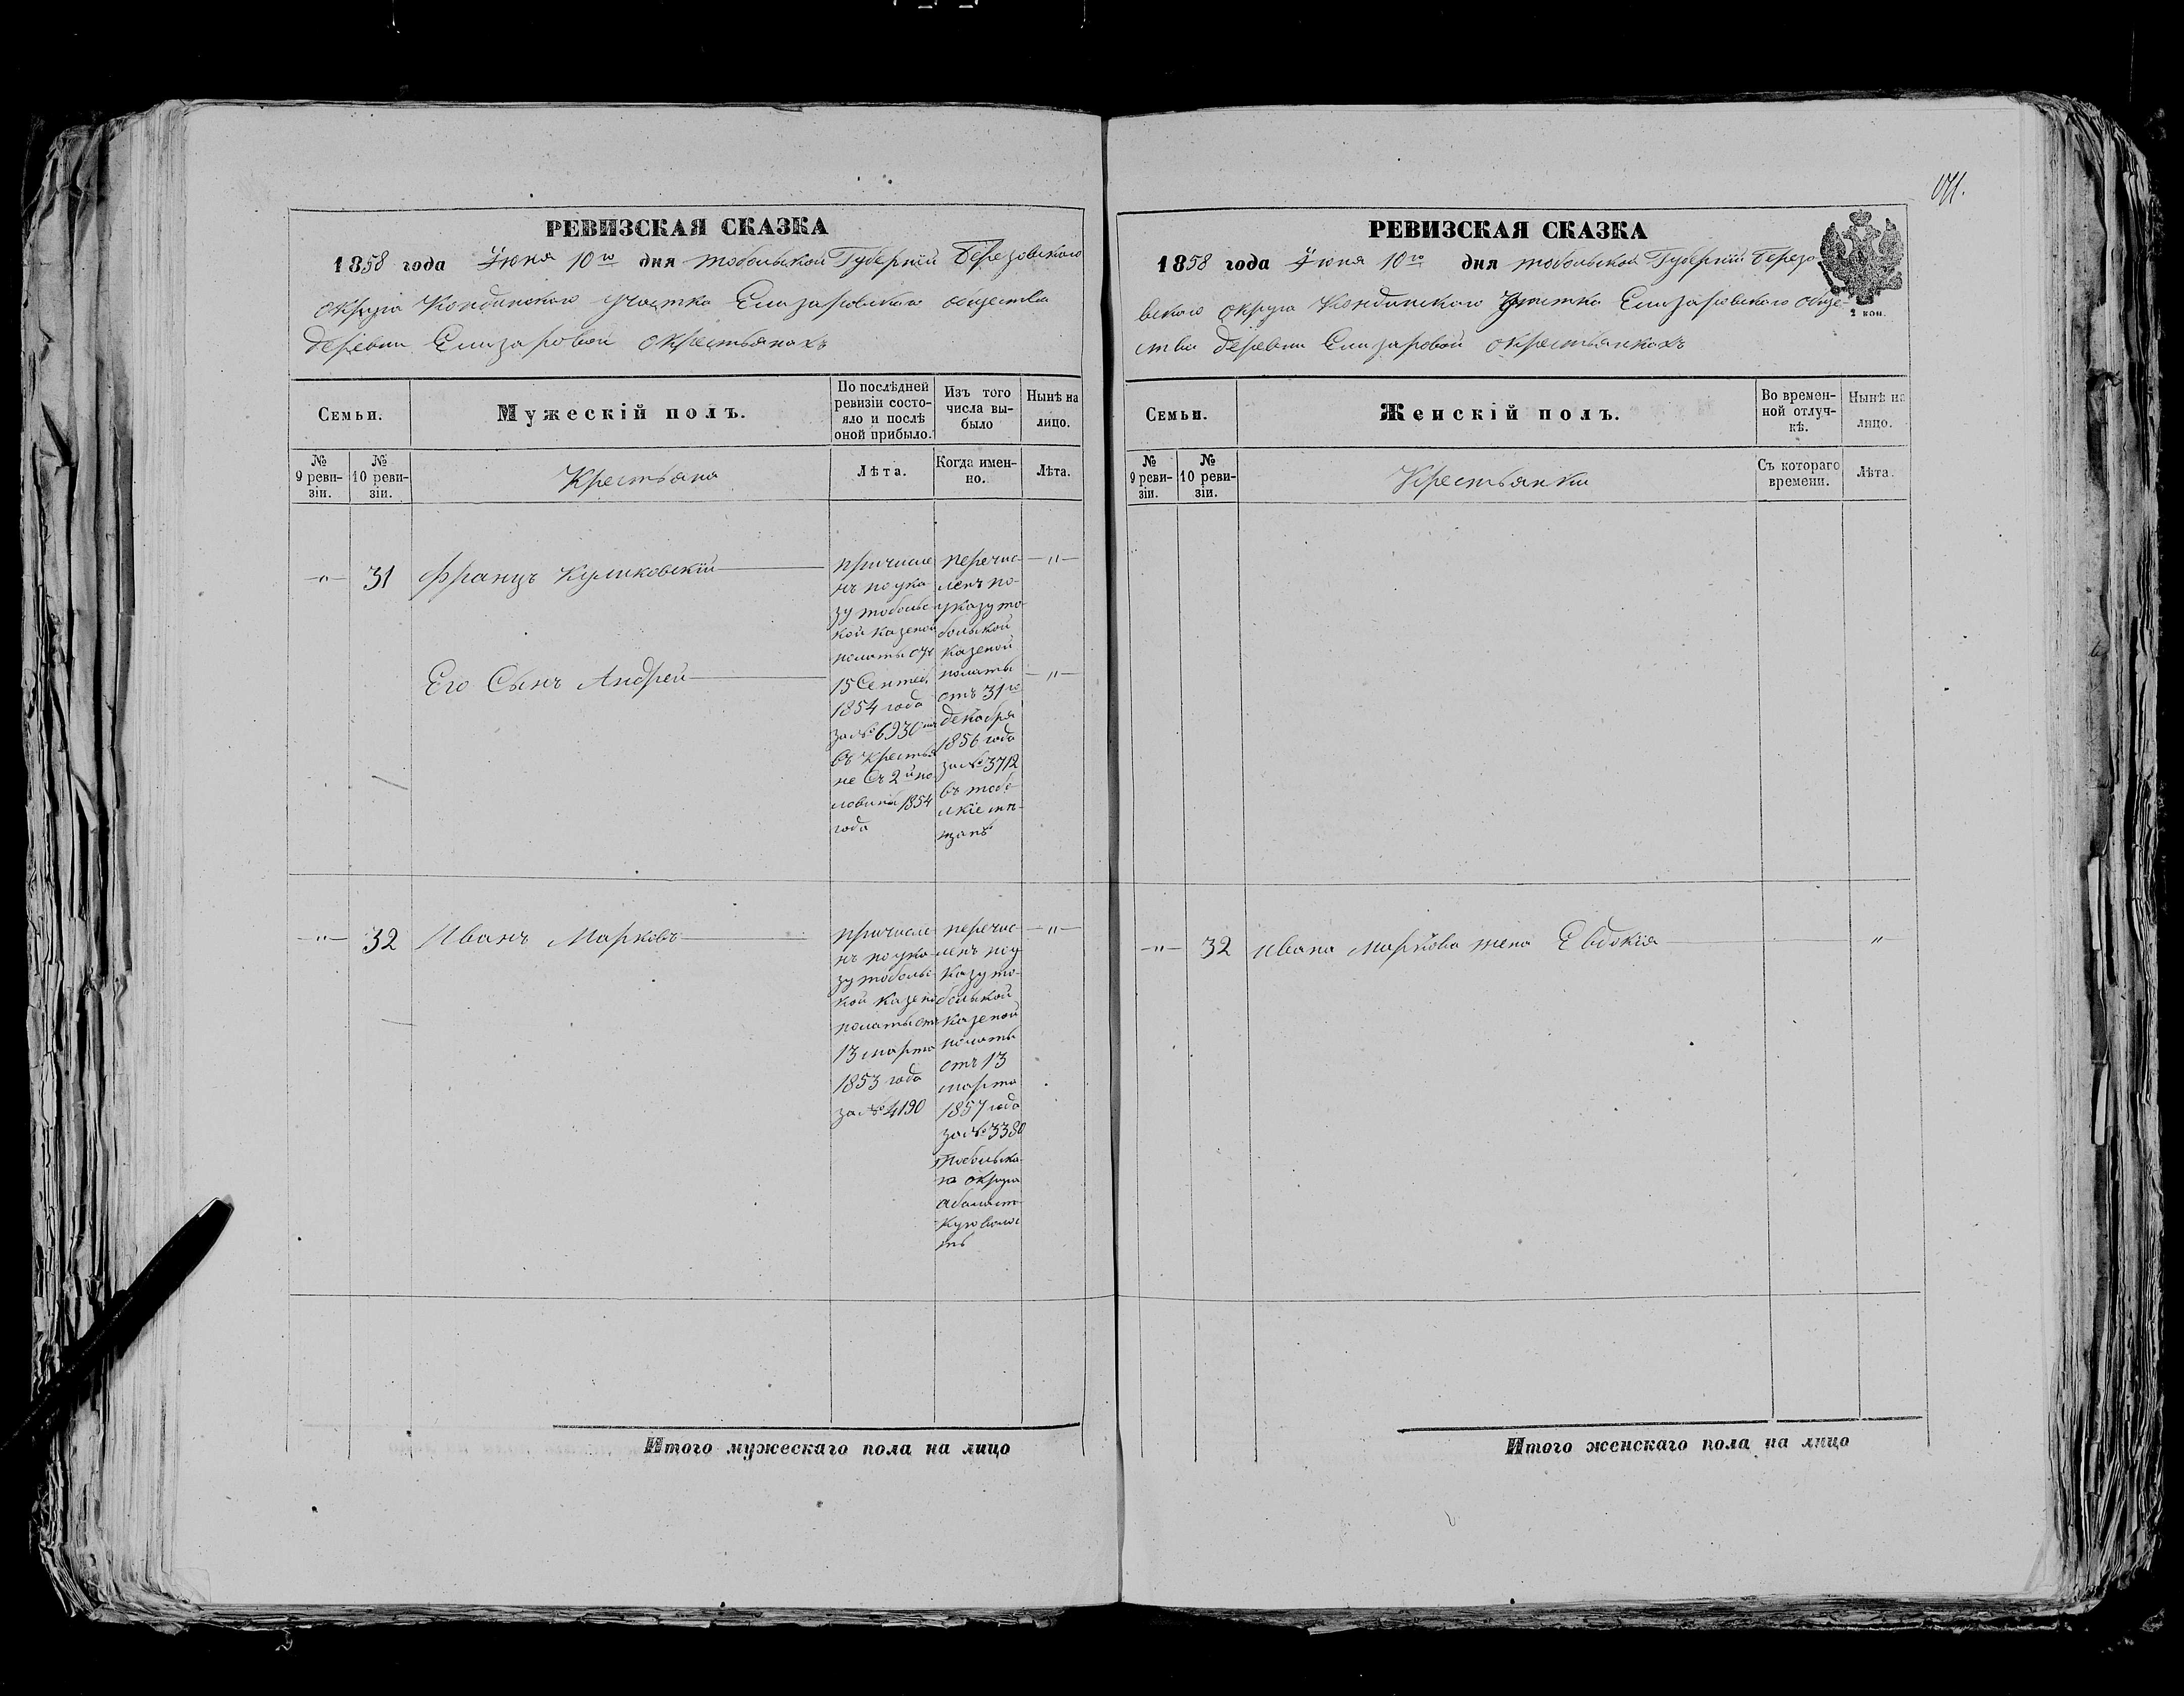 РЕВИЗСКАЯ СКАЗКА
1858 года Июня 10го дня тобольской Губернiи Березовского
округа Кондинского участка Елизаровского общества
деревни Елизаровой окрестьянахъ
Семьи.
Мужескiй полъ.
По послѣдней
ревизiи состо-
яло и послѣ
оной прибыло.
Изъ того
числа вы-
было
Нынѣ на
лицо.
№
9 реви-
зiи.
№
10 реви-
зiи.
Крестьяна
Лѣта.
Когда имен-
но.
Лѣта.
-"- 31 Францъ Куликовскiй
причисле
нъ поука
зу тобольс
кой казеной
полаты отъ
15 Сентеб.
1854 года
за № 6930
въ крестья
не Съ 2й по
ловины 1854
года
перечис
ленъ по-
указу то-
больской
казеной
полаты
отъ 31го
декабря
1856 года
за № 3712
въ тобо-
лскiе мѣ-
щанѣ
-"-
Его Сынъ Андрей
-"-
-"- 32 Иванъ Марковъ
причисле
нъ поука
зу тобольс
кой казено
полаты отъ
13 марта
1853 года
за № 4190
перечис
ленъ поу
казу то-
больской
казеной
полаты
отъ 13
марта
1857 года
за № 3380
Тобольско
го округа
Абалатс
кую волос
ть
-"-
Итого мужескаго пола на лицо
РЕВИЗСКАЯ СКАЗКА
1858 года Июня 10го дня тобольской Губернiи Березо
вского округа Кондинского Участка Елизаровского обще-
ства деревни Елизаровой окрестьянкахъ
2 коп.
Семьи.
Женскiй полъ.
Во времен-
ной отлуч-
кѣ.
Нынѣ на
лицо.
№
9 реви-
зiи.
№
10 реви-
зiи.
Крестьянки
Съ котораго
времени.
Лѣта.
-"- 32 Ивана Маркова жена Евдокiя -"-
Итого женскаго пола на лицо